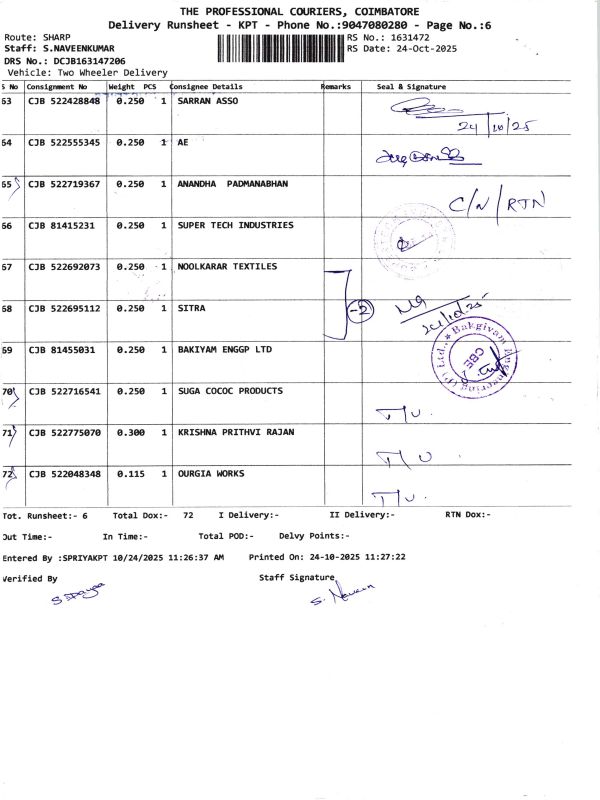 THE PROFESSIONAL COURIERS, COIMBATORE
Delivery Runsheet - KPT - Phone No.:9047080280 - Page No.:6
Route: SHARP RS No.: 1631472
Staff: S.NAVEENKUMAR RS Date: 24-Oct-2025
DRS No.: DCJB163147206
Vehicle: Two Wheeler Delivery
S No Consignment No Weight PCS Consignee Details Remarks Seal & Signature
63 CJB 522428848 0.250 1 SARRAN ASSO
24/10/25
64 CJB 522555345 0.250 1 AE
65 CJB 522719367 0.250 1 ANANDHA PADMANABHAN
C/N/RTN
66 CJB 81415231 0.250 1 SUPER TECH INDUSTRIES
67 CJB 522692073 0.250 1 NOOLKARAR TEXTILES
-2
68 CJB 522695112 0.250 1 SITRA
69 CJB 81455031 0.250 1 BAKIYAM ENGGP LTD
Bakgivam Engineering (P) Ltd.,
CBE
70 CJB 522716541 0.250 1 SUGA COCOC PRODUCTS
T/U.
71 CJB 522775070 0.300 1 KRISHNA PRITHVI RAJAN
T/U
72 CJB 522048348 0.115 1 OURGIA WORKS
T/U.
Tot. Runsheet:- 6 Total Dox:- 72 I Delivery:- II Delivery:- RTN Dox:-
Out Time:- In Time:- Total POD:- Delvy Points:-
Entered By :SPRIYAKPT 10/24/2025 11:26:37 AM Printed On: 24-10-2025 11:27:22
Verified By Staff Signature
S. Naveen